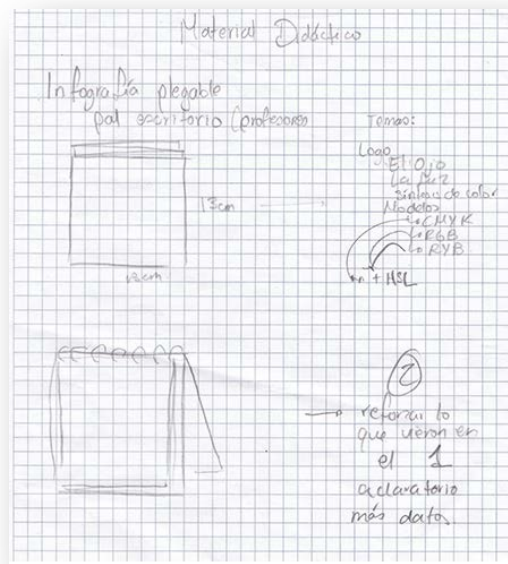 Material Didáctico
Infografía plegable
pal escritorio (profesores
13cm
12cm
Temas:
Logo
El Ojo
La luz
síntesis de color
Modelos
↳ CMYK
↳ RGB
↳ RYB
+ HSL
2
→ reforzar lo
que vieron en
el 1
aclaratorio
más datos